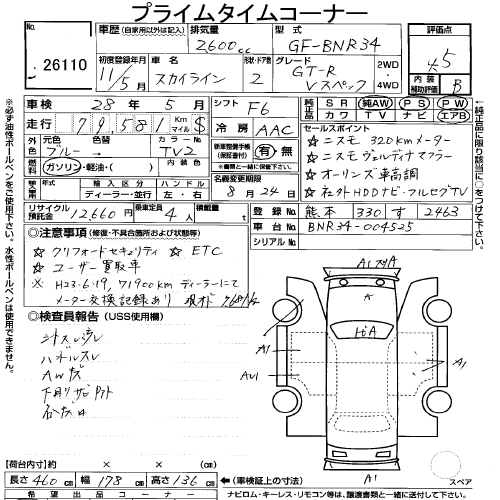 プライムタイムコーナー
No. 26110
車歴 (自家用以外は記入)
排気量 2,600cc
型式 GF-BNR34
評価点 5
初度登録年月 11/5月
車名 スカイライン
形状・ドア数 2
グレード GT-R Vスペック
2WD 4WD
内装補助評価 B
車検 28年5月
シフト F6
純正品 SR 純AW PS PW
革 カワ TV ナビ エアB
走行 79,581 Km マイル $
冷房 AAC
セールスポイント
☆ニスモ 320Kmメーター
☆ニスモ ヴェルディナマフラー
☆オーリンズ車高調
☆社外HDDナビ・フルセグTV
外色 元色 ブルー→ 色替
カラーNo. TV2
新車整備手帳(保証書付) 有・無
※書類と一緒に保管下さい。
燃料 ガソリン・軽油・( )
内装色
名義変更期限 8月24日
輸入区分 ディーラー・並行
ハンドル 左・右
リサイクル預託金 12,660円
乗車定員 4人
積載量 t
登録No. 熊本 330 す 2463
車台No. BNR34-004525
シリアルNo.
◎注意事項 (修復・不具合箇所および状態等)
☆クリフォードセキュリティ ☆ETC
☆ユーザー買取車
※ H23.6.19, 71900km ディーラーにて
メーター交換記録あり
◎検査員報告 (USS使用欄)
ハンドルスレ
AWキズ
A1
A1
AW1
A1
A1
スペア
【荷台内寸】 × × (cm)
長さ 460cm 幅 178cm 高さ 136cm
◀(車検証上の寸法)
希望出品コーナー
ナビロム・キーレス・リモコン等は、譲渡書類と一緒に送付して下さい。
※必ず油性ボールペンをご使用下さい。水性ボールペンは使用できません。